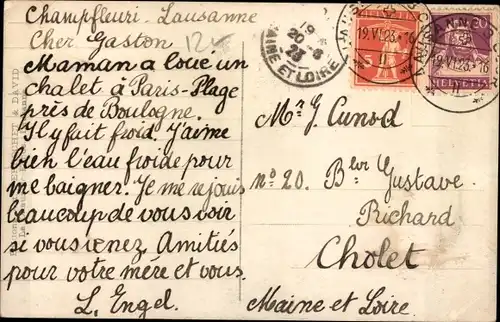 Champfleuri - Lausanne
Cher Gaston
Maman a loué un
chalet à Paris-Plage
près de Boulogne.
Il y fait froid. J'aime
bien l'eau froide pour
me baigner. Je me rejouis
beaucoup de vous voir
si vous venez. Amitiés
pour votre mère et vous.
L. Engel.
12
19
20-6
23
MAINE ET LOIRE
5
20
HELVETIA
LAUSANNE
19.VI.23-16
19.VI.23-16
Mr J. Cunod
no 20. Blvr Gustave
Richard
Cholet
Maine et Loire.